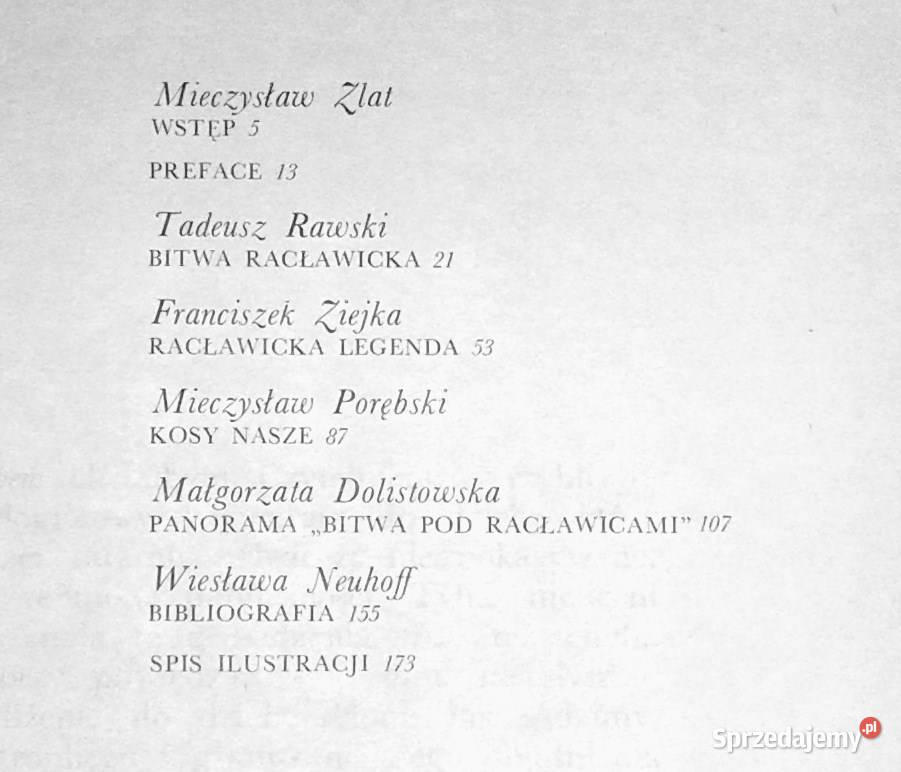 Mieczysław Zlat
WSTĘP 5
PREFACE 13
Tadeusz Rawski
BITWA RACŁAWICKA 21
Franciszek Ziejka
RACŁAWICKA LEGENDA 53
Mieczysław Porębski
KOSY NASZE 87
Małgorzata Dolistowska
PANORAMA „BITWA POD RACŁAWICAMI” 107
Wiesława Neuhoff
BIBLIOGRAFIA 155
SPIS ILUSTRACJI 173
Sprzedajemy.pl